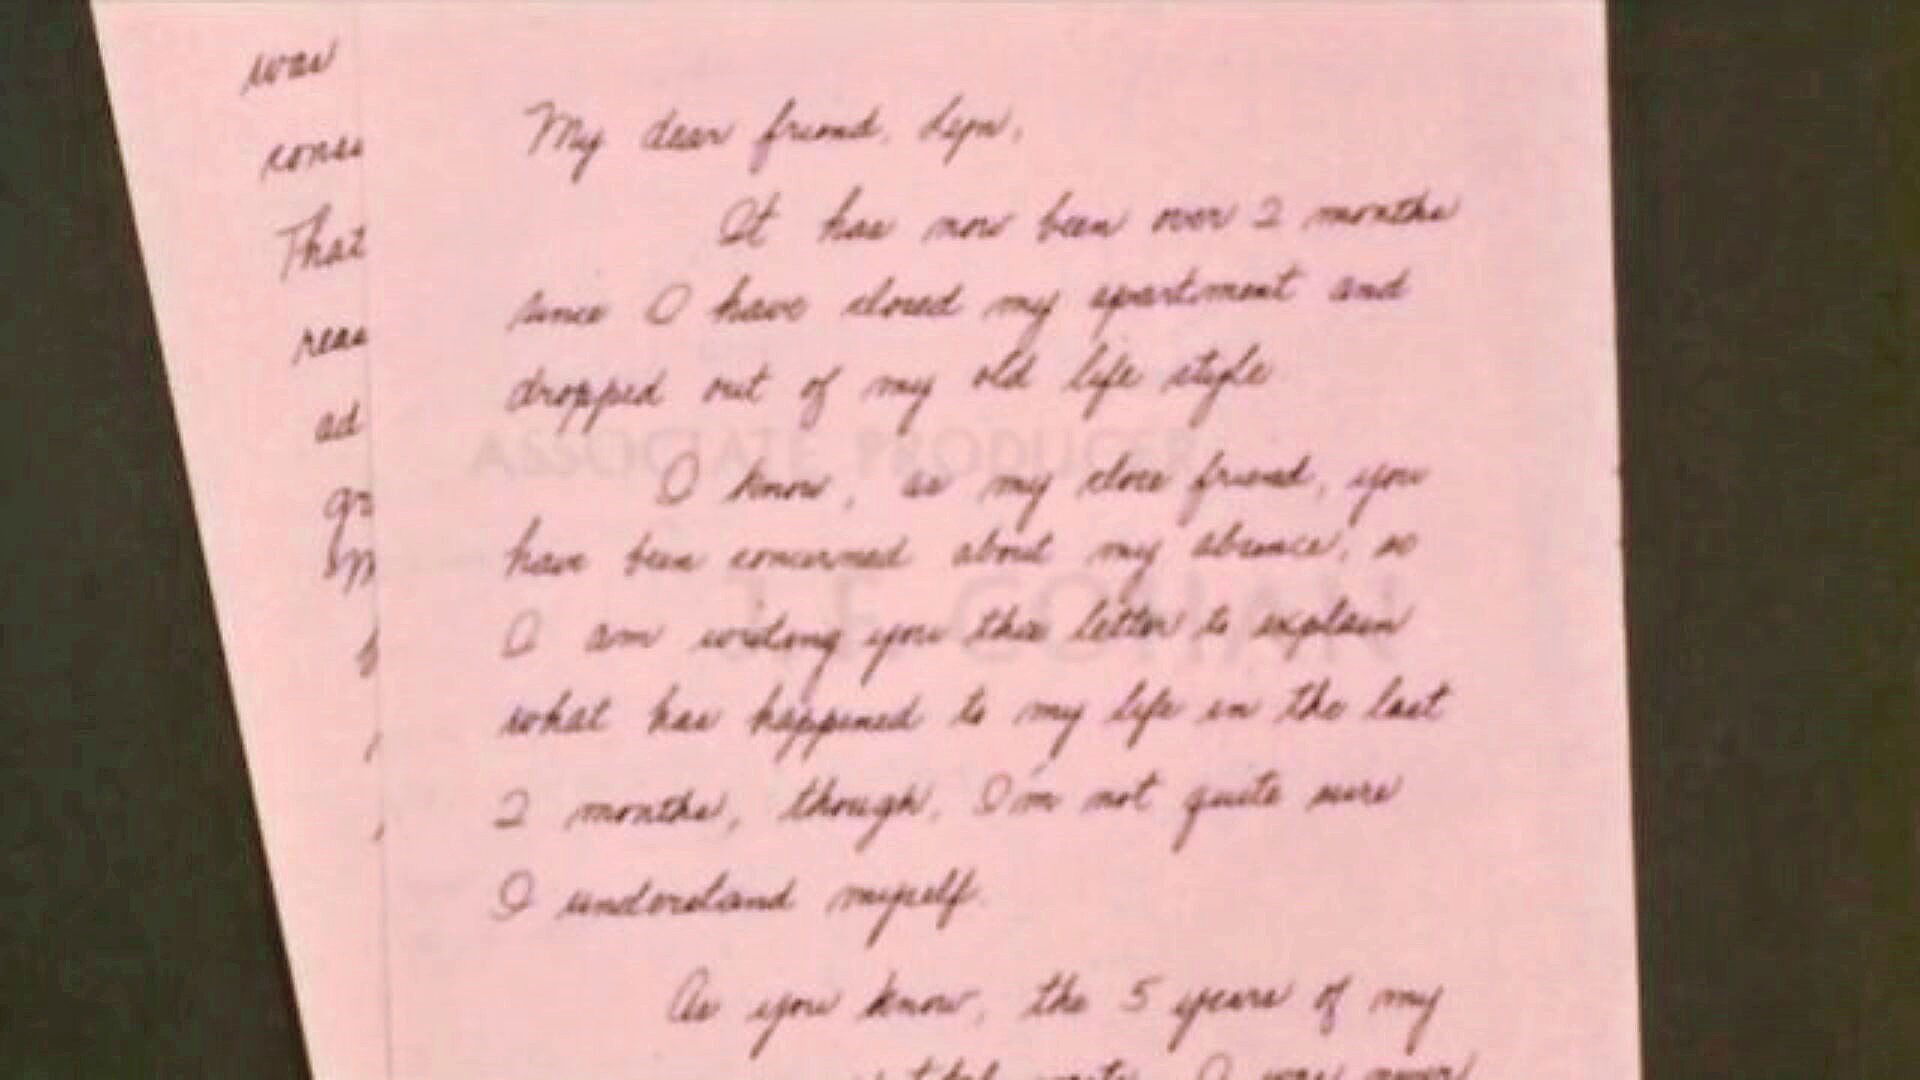 was
cons
That
reas
ad
gr
My dear friend, Lyn,
It has now been over 2 months
since I have closed my apartment and
dropped out of my old life style
I know, as my close friend, you
have been concerned about my absence, so
I am writing you this letter to explain
what has happened to my life in the last
2 months, though, I'm not quite sure
I understand myself.
As you know, the 5 years of my
I was never
ASSOCIATE PRODUCER
COHAN